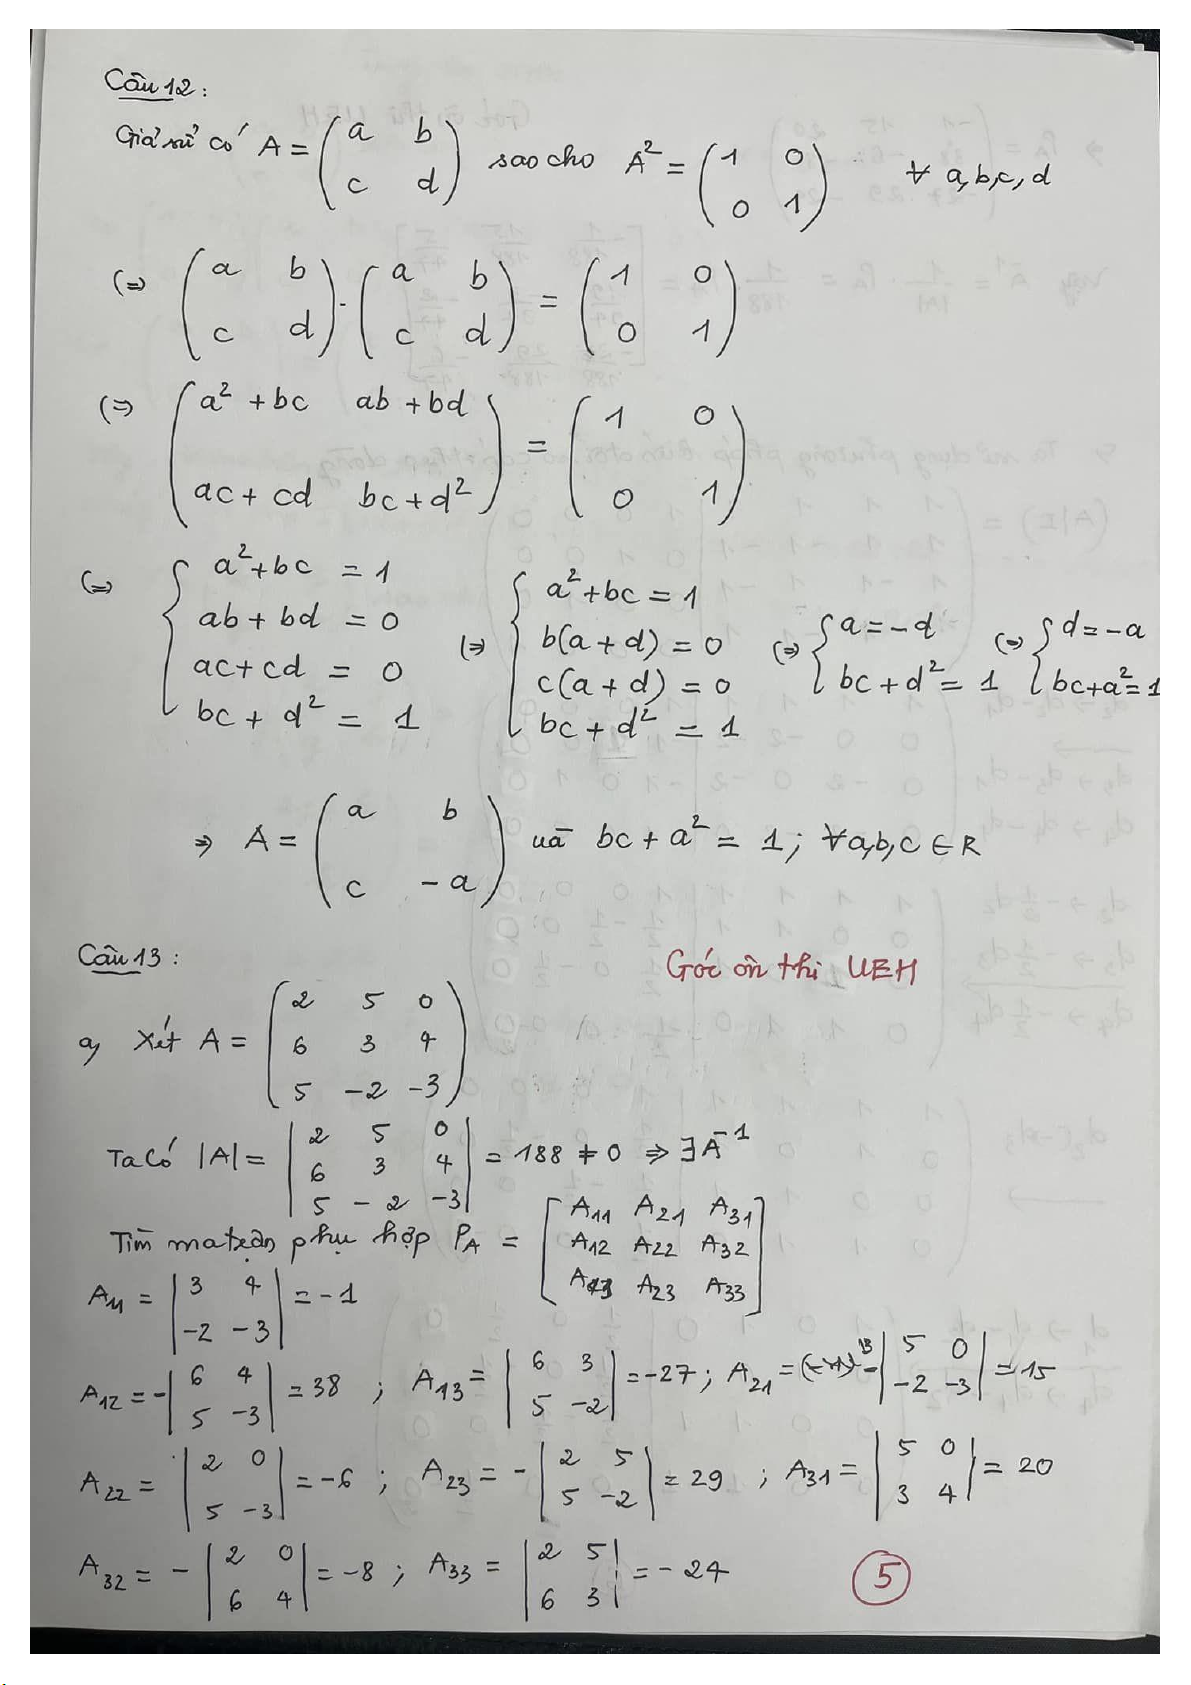 Câu 12:
Giả sử có A = (a b; c d) sao cho A² = (1 0; 0 1) ∀ a,b,c,d
(=) (a b; c d) · (a b; c d) = (1 0; 0 1)
(=) (a² + bc ab + bd; ac + cd bc + d²) = (1 0; 0 1)
(=) { a² + bc = 1; ab + bd = 0; ac + cd = 0; bc + d² = 1 (=) { a² + bc = 1; b(a + d) = 0; c(a + d) = 0; bc + d² = 1 (=) { a = -d; bc + d² = 1 (=) { d = -a; bc + a² = 1
=> A = (a b; c -a) và bc + a² = 1; ∀a,b,c ∈ R
Câu 13:
Góc ôn thi UEH
a, Xét A = (2 5 0; 6 3 4; 5 -2 -3)
Ta Có |A| = |2 5 0; 6 3 4; 5 -2 -3| = 188 ≠ 0 => ∃A⁻¹
Tìm ma trận phụ hợp P_A = [A11 A21 A31; A12 A22 A32; A13 A23 A33]
A11 = |3 4; -2 -3| = -1
A12 = -|6 4; 5 -3| = 38 ; A13 = |6 3; 5 -2| = -27 ; A21 = -|5 0; -2 -3| = 15
A22 = |2 0; 5 -3| = -6 ; A23 = -|2 5; 5 -2| = 29 ; A31 = |5 0; 3 4| = 20
A32 = -|2 0; 6 4| = -8 ; A33 = |2 5; 6 3| = -24
5